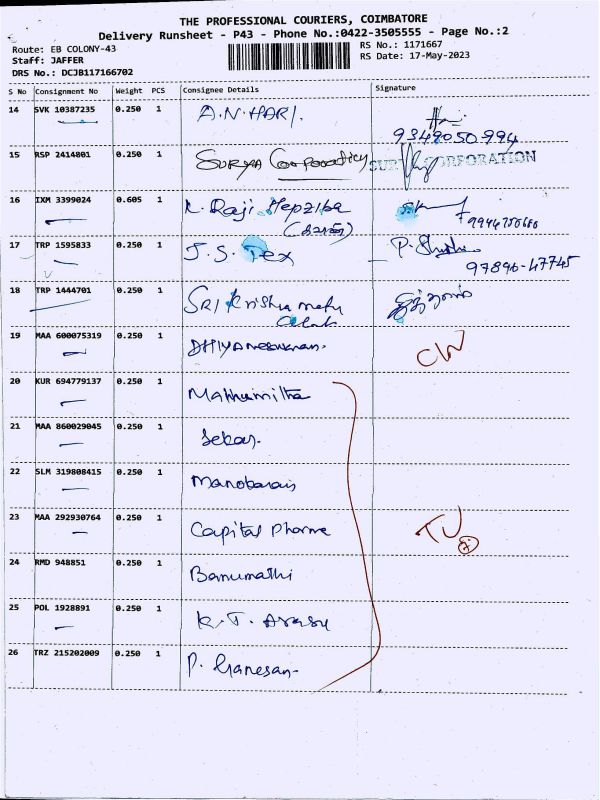 THE PROFESSIONAL COURIERS, COIMBATORE
Delivery Runsheet - P43 - Phone No.:0422-3505555 - Page No.:2
Route: EB COLONY-43
RS No.: 1171667
Staff: JAFFER
RS Date: 17-May-2023
DRS No.: DCJB117166702
S No Consignment No Weight PCS Consignee Details Signature
14 SVK 10387235 0.250 1 A.N.HARI.
9349050994
15 RSP 2414801 0.250 1 SURYA Corporation CORPORATION
16 IXM 3399024 0.605 1 K. Raji Hepziba
9944750600
17 TRP 1595833 0.250 1 J.S. Tex
97896-47745
18 TRP 1444701 0.250 1 SRI Krishna
19 MAA 600075319 0.250 1 DHIYANESWARAN. CW
20 KUR 694779137 0.250 1 Madhumitha
21 MAA 860029045 0.250 1 Sekar.
22 SLM 319808415 0.250 1
23 MAA 292930764 0.250 1 Capital Pharma TU
24 RMD 948851 0.250 1 Banumathi
25 POL 1928891 0.250 1 K.T. Arasu
26 TRZ 215202009 0.250 1 P. Ganesan